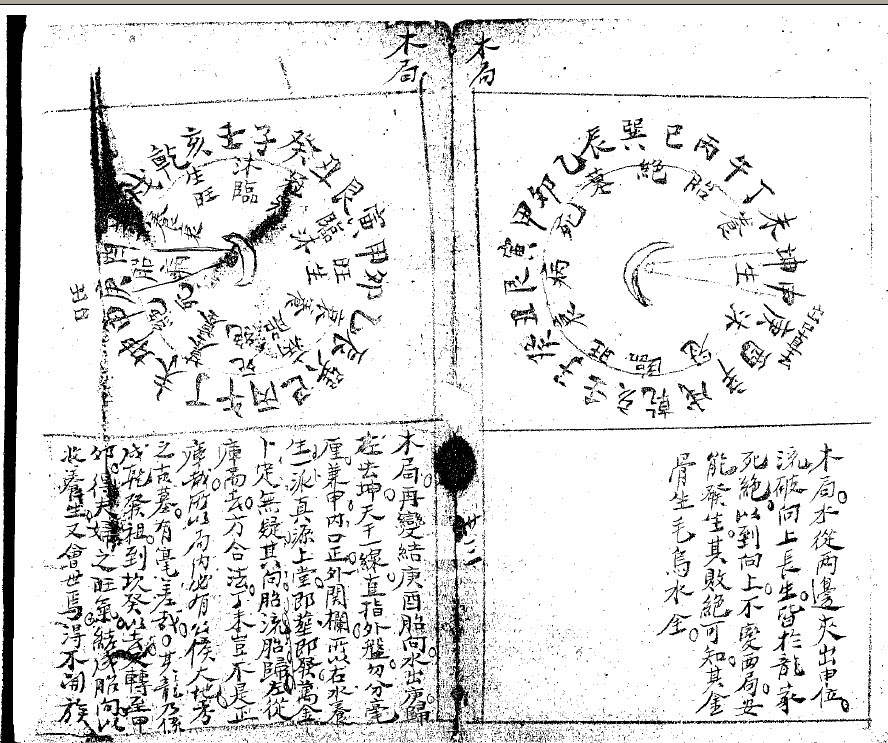 木局
木局水從兩邊夾出申位
流破向上長生皆於龍家
死絕以到向上不變西局安
能發生其敗絕可知其金
骨生毛烏水金
巽巳丙午丁未坤申庚酉辛戌乾亥壬子癸丑艮寅甲卯乙辰
絕胎養生沐冠臨旺衰病死墓
廿三
木局
壬子癸丑艮寅甲卯乙辰巽巳丙午丁未坤
戌乾亥
木局再變結庚酉胎向水出庚歸
坤天干一線直指外盤勿分毫
厘兼甲內口正外関欄所以右水養
生一派直源上堂即葬即發萬金
卜定無疑其向胎流胎歸左從
庫而去方合法丁未豈不是正
庫哉所以局內必有公侯大地考
之古墓有毫差哉其龍乃係
戌乾發祖到坎癸以去又轉至甲
卯得夫婦之旺氣結成胎向以
收養生又會世焉得不開族